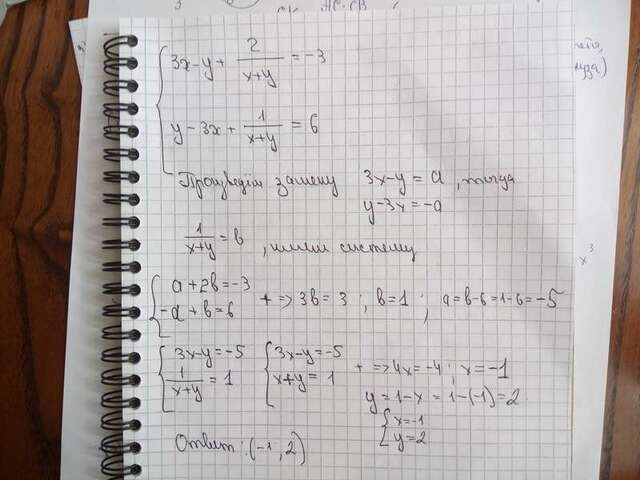 3x-y+ 2/(x+y) = -3
y-3x+ 1/(x+y) = 6
Произведём замену 3x-y = a, тогда
y-3x = -a
1/(x+y) = b, имеем систему
a+2b=-3
-a+b=6 + => 3b=3; b=1; a=b-6=1-6=-5
3x-y=-5 3x-y=-5
1/(x+y) = 1 x+y=1 + => 4x=-4; x=-1
y=1-x=1-(-1)=2
x=-1
y=2
Ответ: (-1, 2)